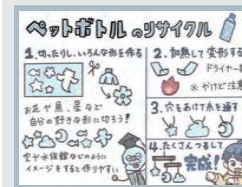 ペットボトルのリサイクル
1.切ったりし、いろんな形を作る
お花や魚、星など
自分の好きな形に切ろう!
空や水族館などのように
イメージをすると作りやすい
2.加熱して変形する
ドライヤー
※やけど注意
3.穴をあけて糸を通す
4.たくさんつるして
完成!